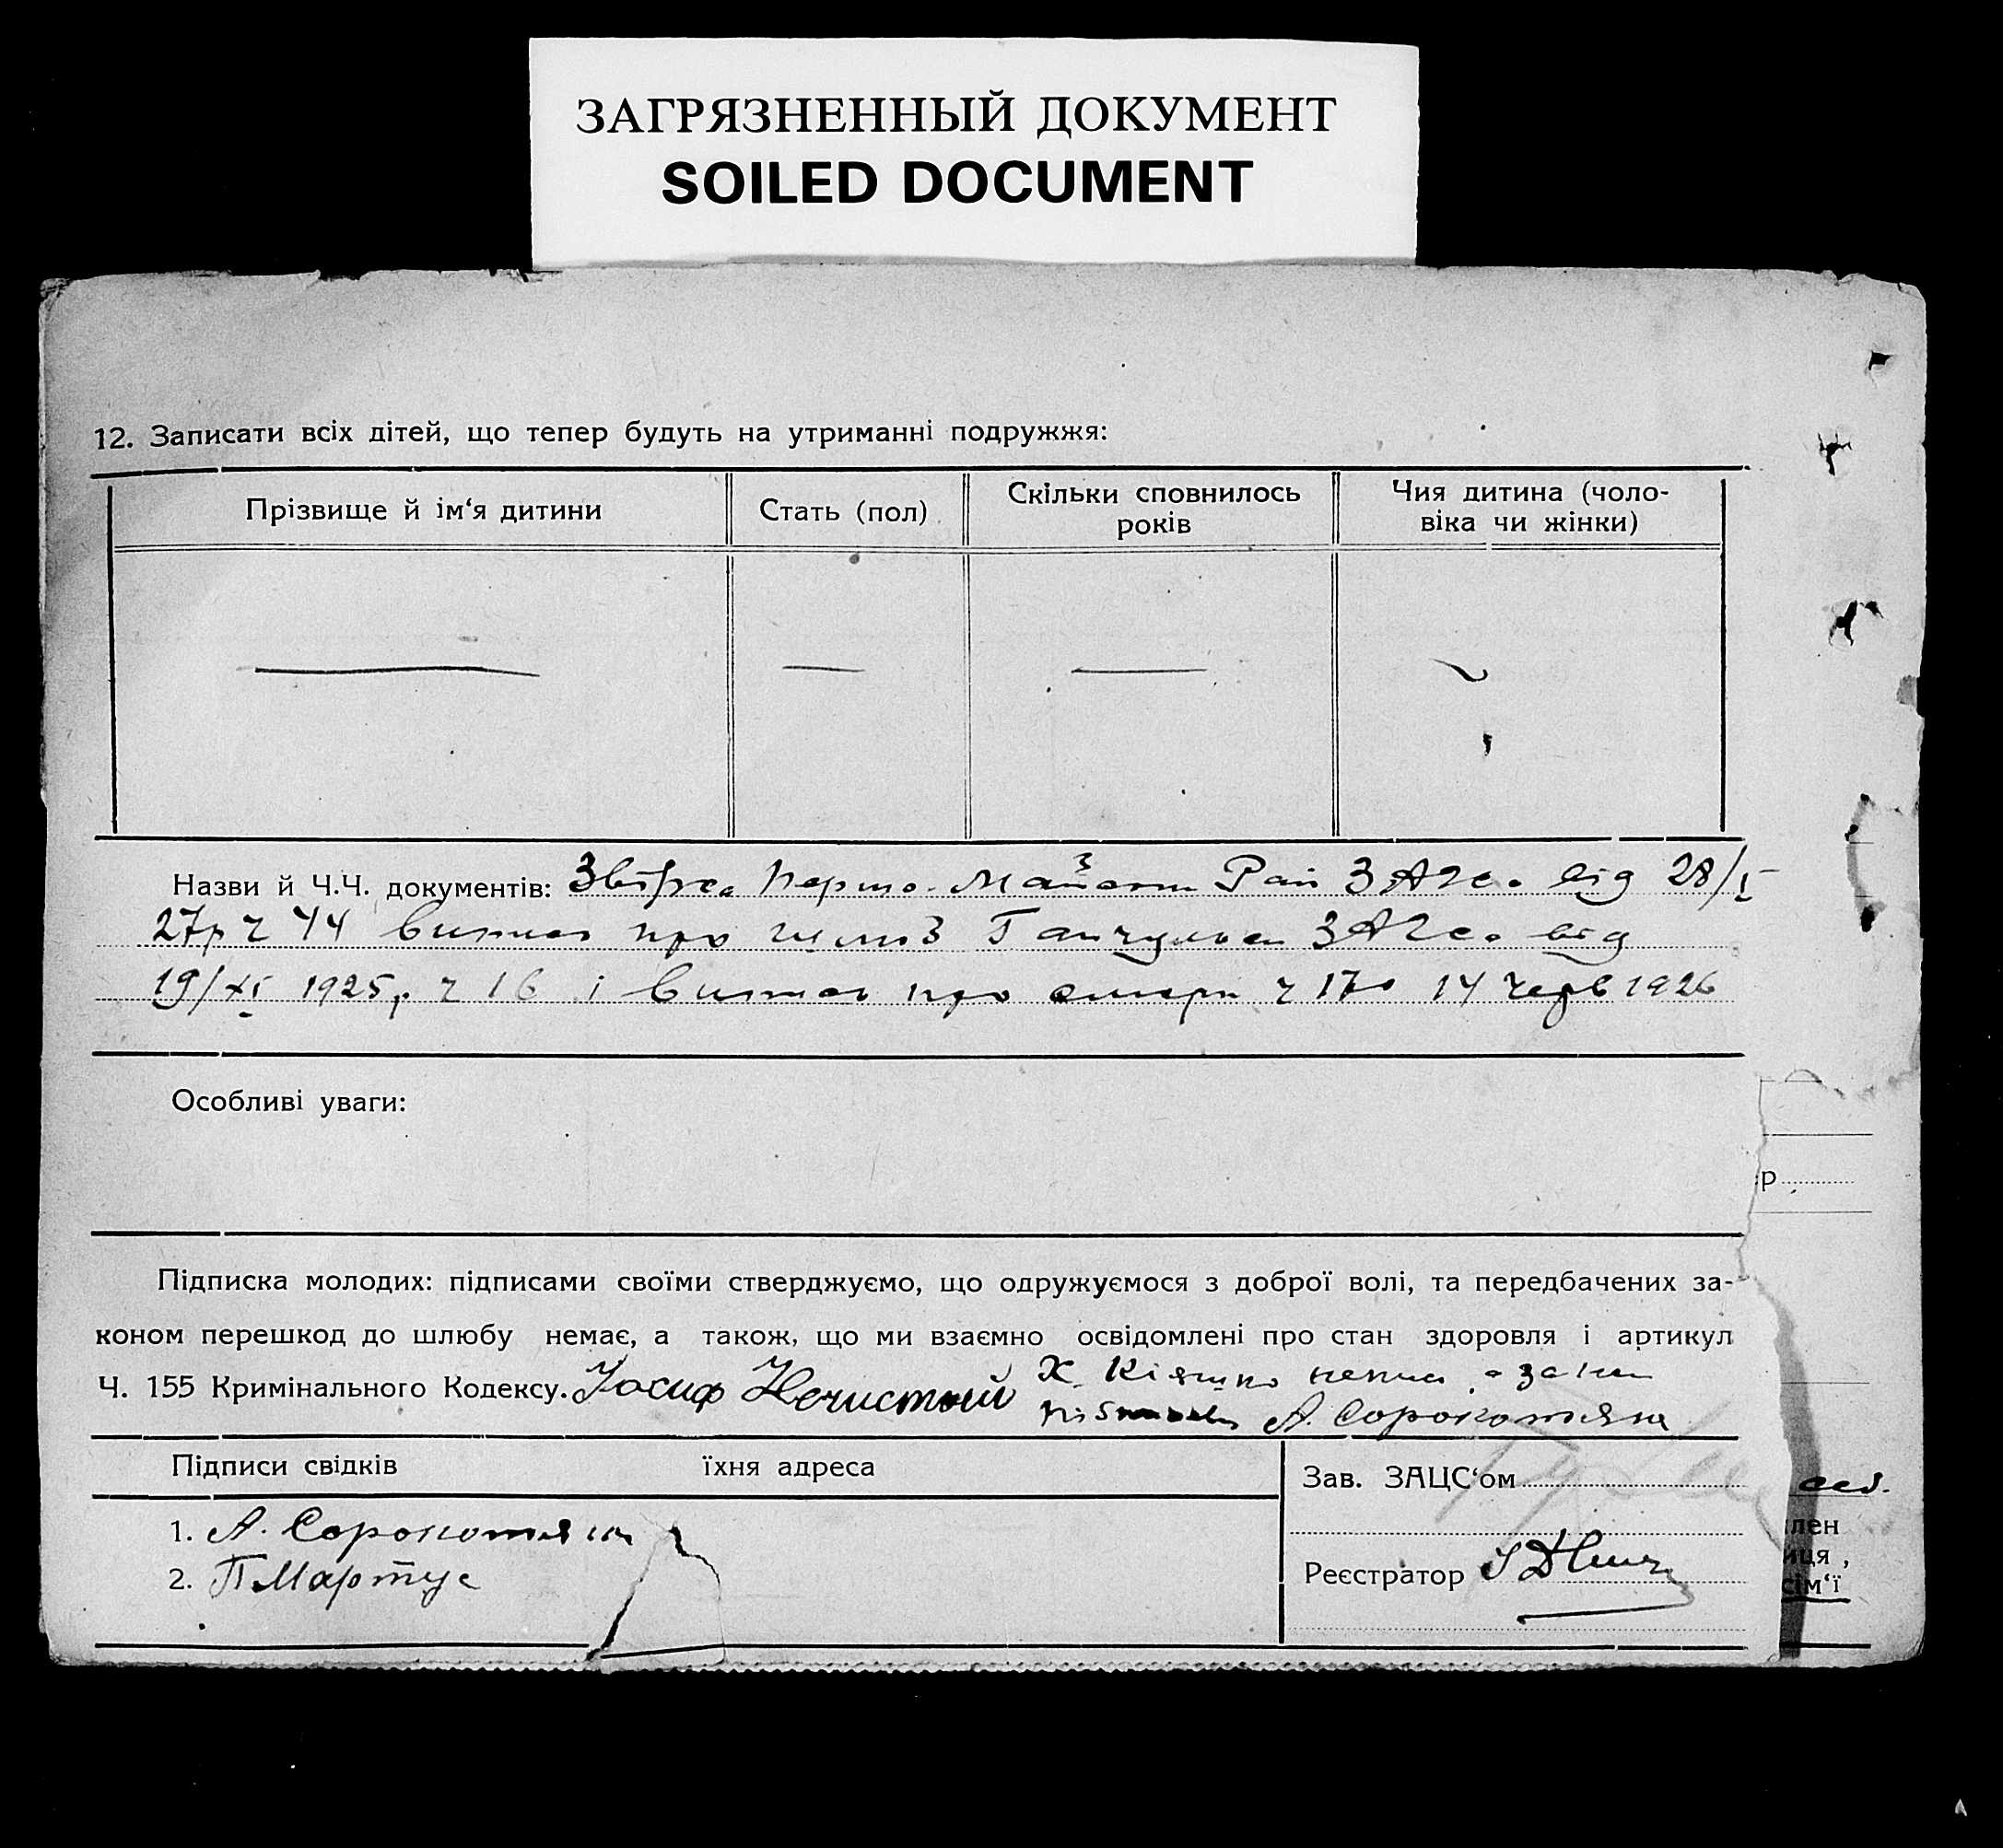 ЗАГРЯЗНЕННЫЙ ДОКУМЕНТ
SOILED DOCUMENT
12. Записати всіх дітей, що тепер будуть на утриманні подружжя:
Прізвище й ім‘я дитини
Стать (пол)
Скільки сповнилось
років
Чия дитина (чоло-
віка чи жінки)
Назви й Ч.Ч. документів: Рай ЗАГС. від 28/I
27р ч 44 про ЗАГС. від
19/XI 1925р. ч 16 і про ч 17 14 черв 1926
Особливі уваги:
Підписка молодих: підписами своїми стверджуємо, що одружуємося з доброї волі, та передбачених за-
коном перешкод до шлюбу немає, а також, що ми взаємно освідомлені про стан здоровля і артикул
Ч. 155 Кримінального Кодексу. Иосиф Нечистый Х. Кіяшко
А. Сорокотяга
Підписи свідків
їхня адреса
Зав. ЗАЦС‘ом
1. А. Сорокотяга
2. П Мартус
Реєстратор
р
лен
иця,
сім‘ї